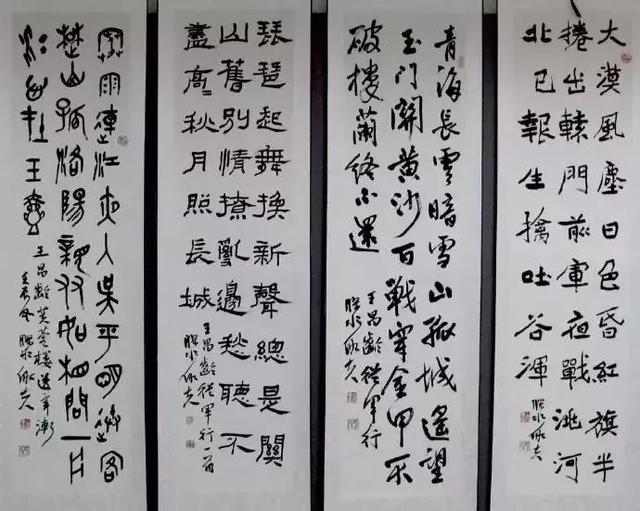 大漠風塵日色昏紅旗半
捲出轅門前軍夜戰洮河
北已報生擒吐谷渾
青海長雲暗雪山孤城遥望
玉門關黄沙百戰穿金甲不
破樓蘭終不還
王昌齡從軍行
琵琶起舞換新聲總是關
山舊別情撩亂邊愁聽不
盡高〻秋月照長城
王昌齡從軍行一首
寒雨連江夜入吳平明送客
楚山孤洛陽親友如相問一片
冰心在玉壺
王昌齡芙蓉樓送辛漸